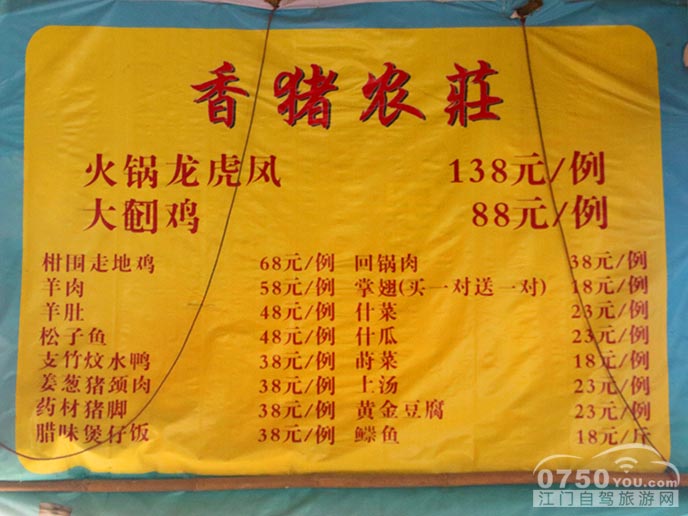 香猪农莊
火锅龙虎凤 138元/例
大鸡 88元/例
柑围走地鸡 68元/例
羊肉 58元/例
羊肚 48元/例
松子鱼 48元/例
支竹炆水鸭 38元/例
姜葱猪颈肉 38元/例
药材猪脚 38元/例
腊味煲仔饭 38元/例
回锅肉 38元/例
掌翅(买一对送一对) 18元/例
什菜 23元/例
什瓜 23元/例
莳菜 18元/例
上汤 23元/例
黄金豆腐 23元/例
鲽鱼 18元/斤
0750YOU.COM
江门自驾旅游网